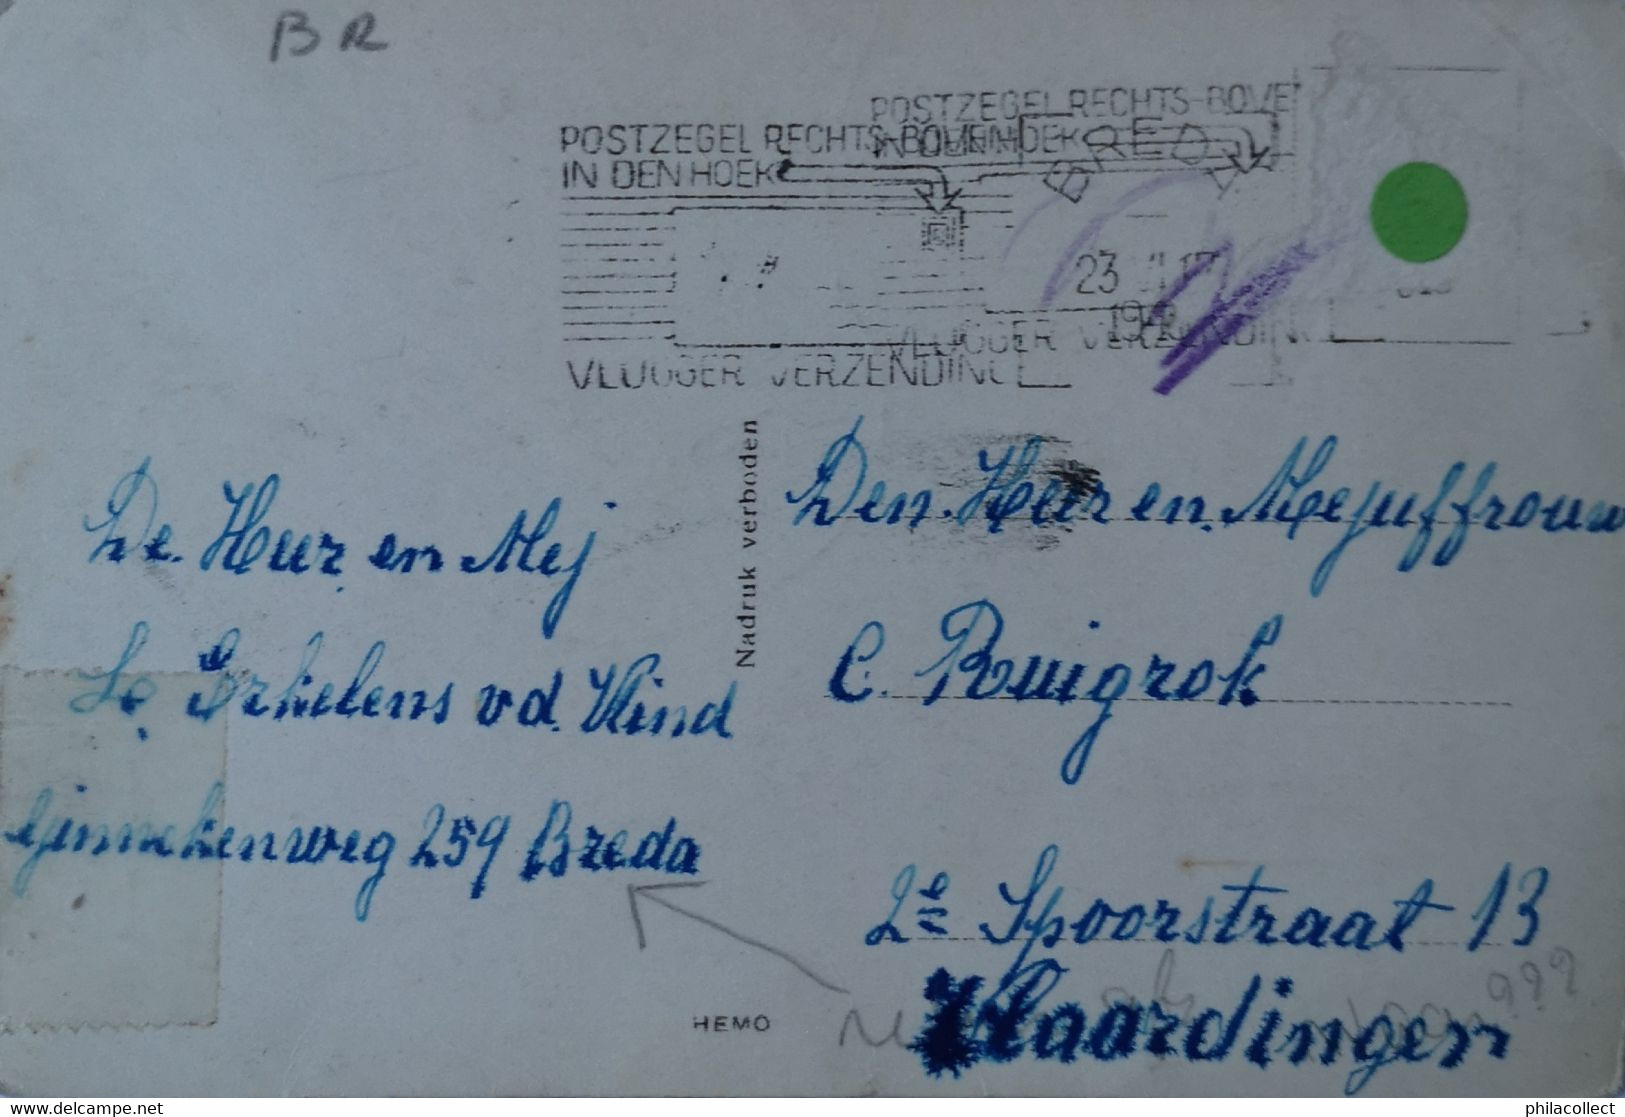 BR
POSTZEGEL RECHTS-BOVEN
IN DEN HOEK
POSTZEGEL RECHTS-BOVE
IN DEN HOEK
BREDA
23
VLUGGER VERZENDING
VLUGGER VERZENDING
De Heer en Mej
L. Erkelens vd. Klind
Ginnekenweg 259 Breda
Nadruk verboden
HEMO
Den Heer en Mejuffrouw
C. Ruigrok
2e Spoorstraat 13
Vlaardingen
???
philacollect